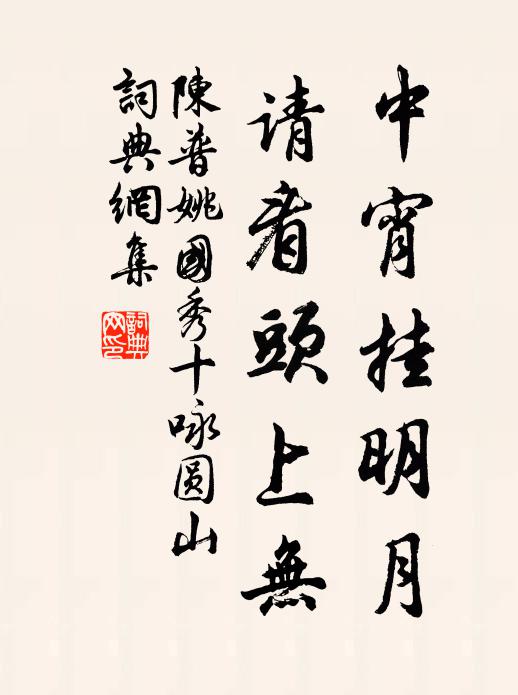 中宵挂明月
请看頭上無
陳普姚國秀十咏圓山
詞典網集
詞典网印